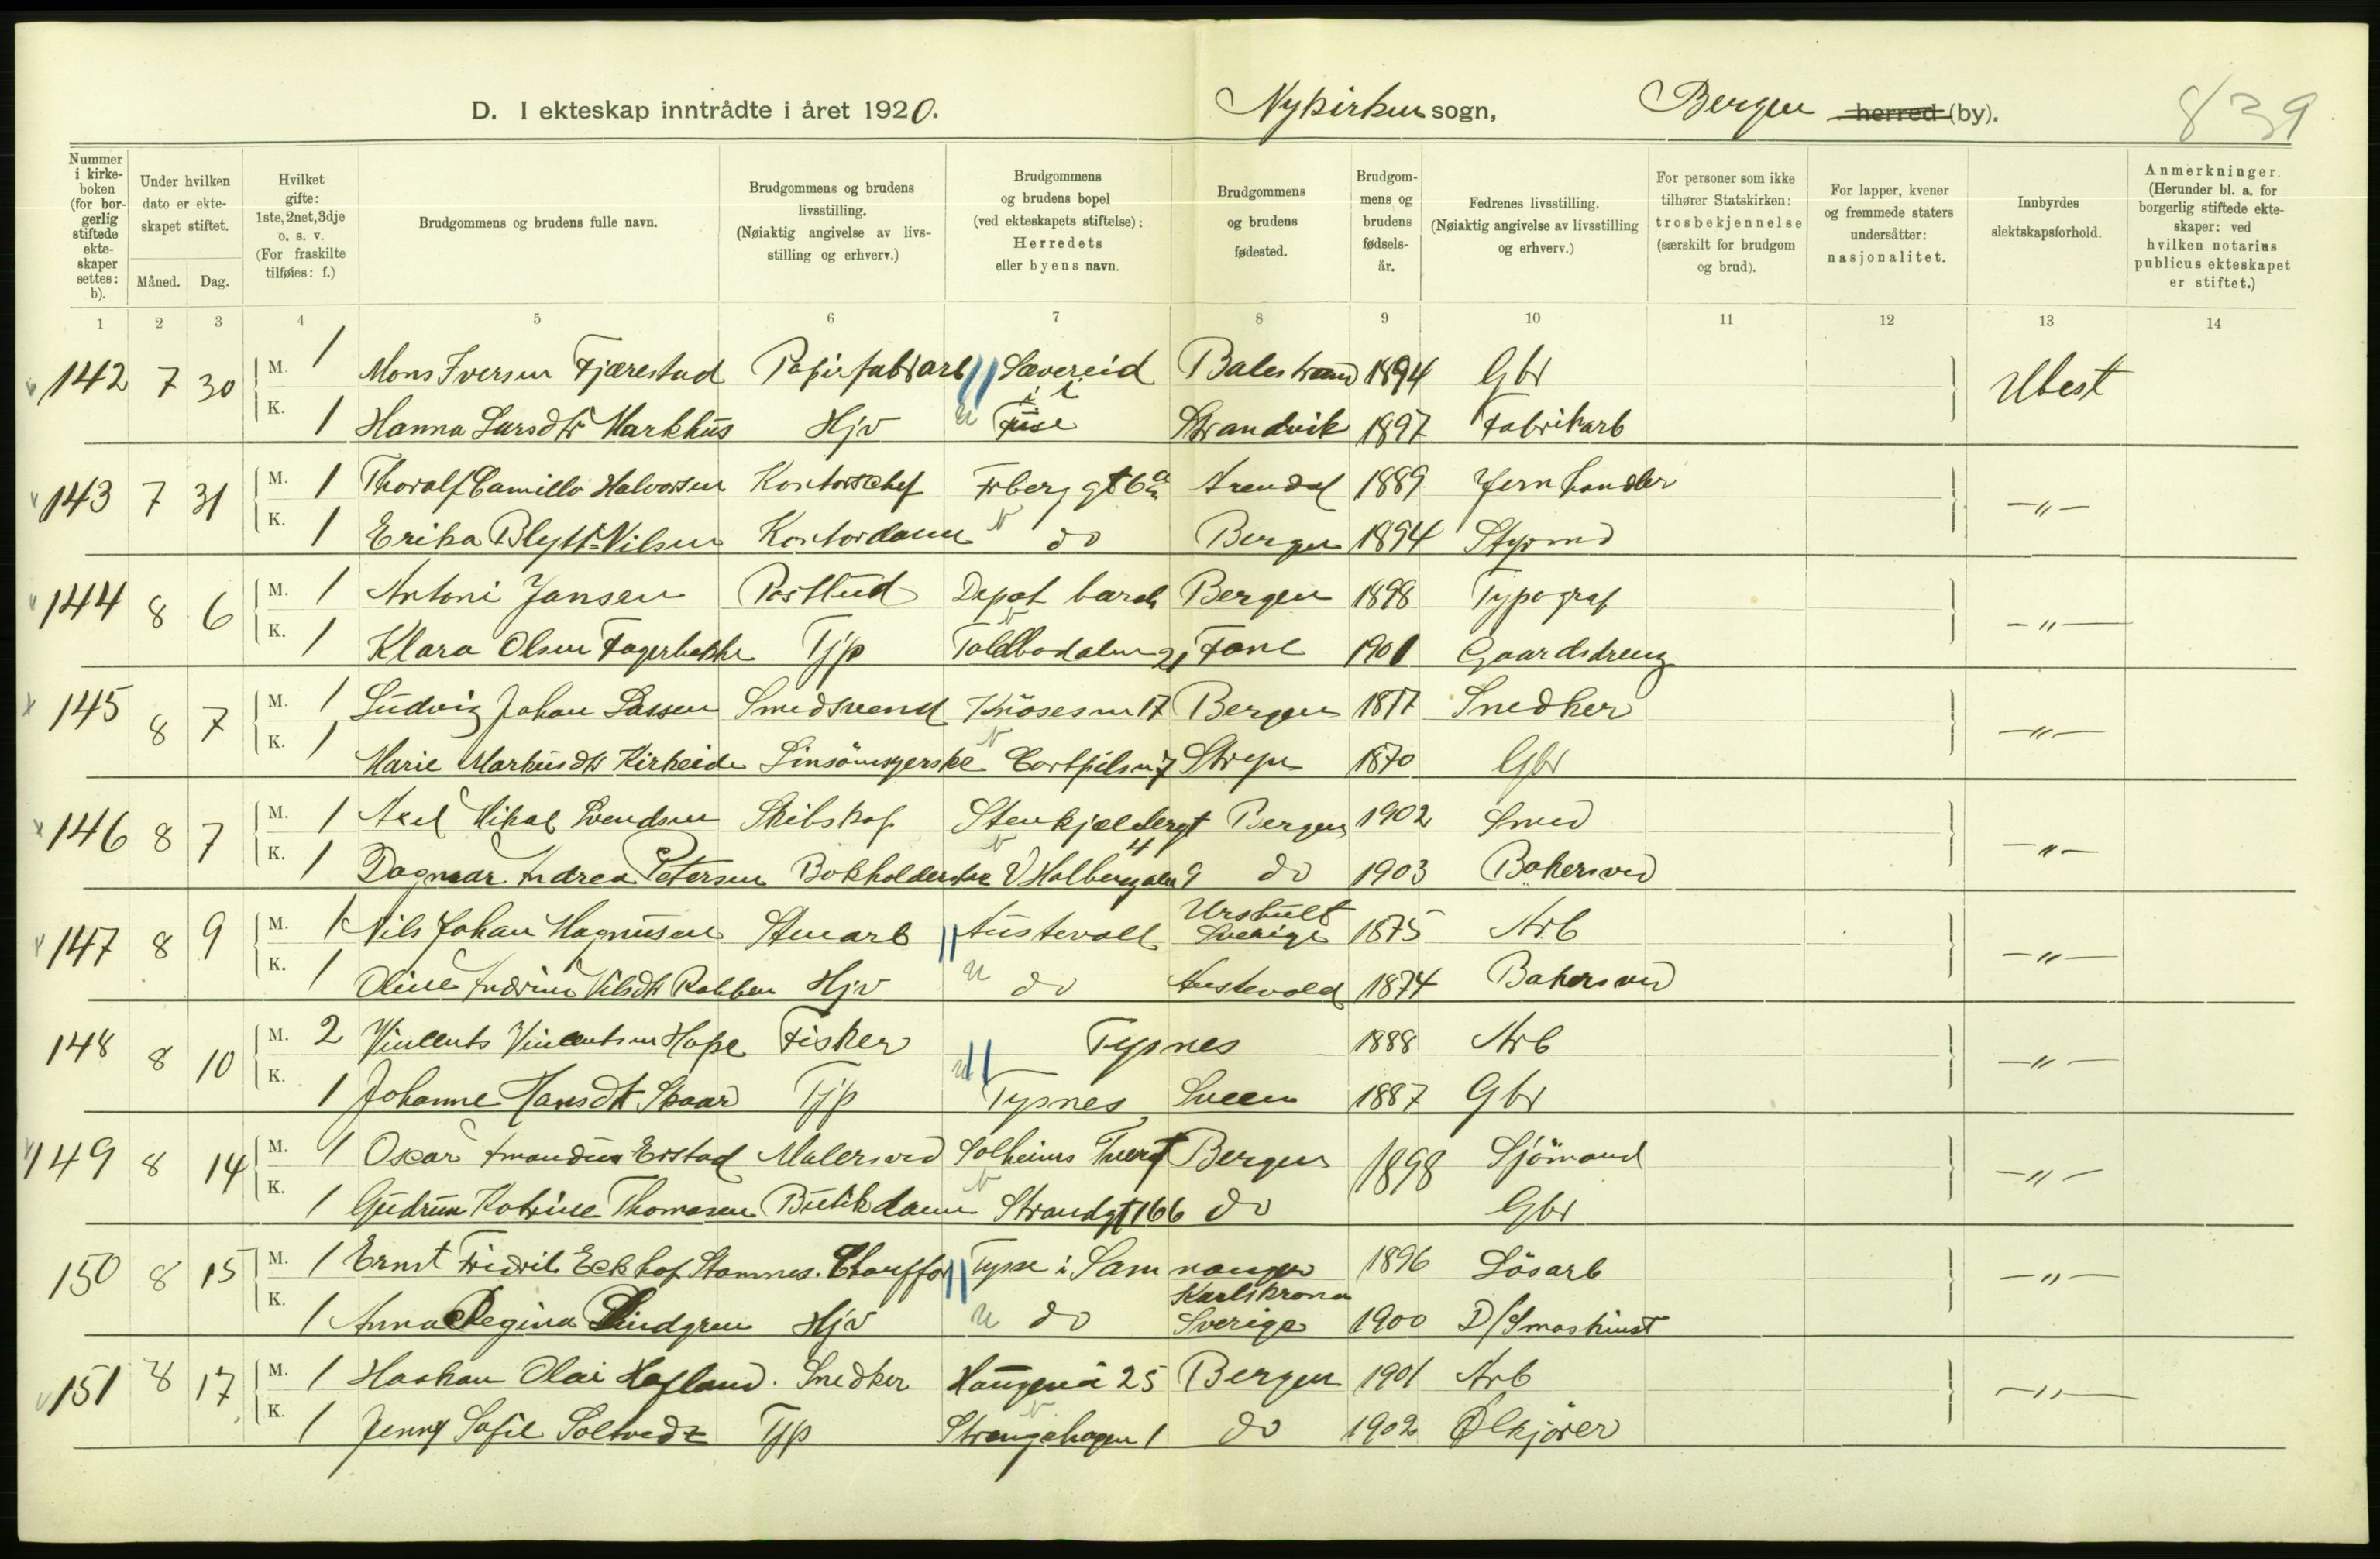 D. I ekteskap inntrådte i året 1920. Nykirken sogn, Bergen herred (by). 839
Nummer i kirkeboken (for borgerlig stiftede ekteskaper settes: b).
Under hvilken dato er ekteskapet stiftet.
Måned. Dag.
Hvilket gifte: 1ste, 2net, 3dje o. s. v. (For fraskilte tilføies: f.)
Brudgommens og brudens fulle navn.
Brudgommens og brudens livsstilling. (Nøiaktig angivelse av livsstilling og erhverv.)
Brudgommens og brudens bopel (ved ekteskapets stiftelse): Herredets eller byens navn.
Brudgommens og brudens fødested.
Brudgommens og brudens fødselsår.
Fedrenes livsstilling. (Nøiaktig angivelse av livsstilling og erhverv.)
For personer som ikke tilhører Statskirken: trosbekjennelse (særskilt for brudgom og brud).
For lapper, kvener og fremmede staters undersåtter: nasjonalitet.
Innbyrdes slektskapsforhold.
Anmerkninger. (Herunder bl. a. for borgerlig stiftede ekteskaper: ved hvilken notarius publicus ekteskapet er stiftet.)
1 2 3 4 5 6 7 8 9 10 11 12 13 14
142 7 30 M. 1 Mons Iversen Fjærestad Papirfabrarb Sævereid i Balestrand 1894 Gbr Ubest
K. 1 Hanna Larsdtr Markhus Hjv Fuse Strandvik 1897 Fabrikarb
143 7 31 M. 1 Thoralf Camillo Halvorsen Kontorschef Frberg gt 6a Arendal 1889 Jernhandler —"—
K. 1 Erika Blytt Nilsen Kontordame do Bergen 1894 Styrmd
144 8 6 M. 1 Antoni Jansen Postbud Depot barak Bergen 1898 Typograf —"—
K. 1 Klara Olsen Fagerbakke Tjp Toldbodalm 21 Fane 1901 Gaardsdreng
145 8 7 M. 1 Ludvig Johan Lassen Smedsvend Knøsesm 17 Bergen 1877 Snedker —"—
K. 1 Marie Markusdtr Kirkeide Linsömgerske Cortpilsm 7 Stryn 1870 Gbr
146 8 7 M. 1 Axel Mikal Svendsen Skibskok Stenkjældergt 4 Bergen 1902 Smed —"—
K. 1 Dagmar Andrea Petersen Bokholderske V Holbergalm 9 do 1903 Bakersvd
147 8 9 M. 1 Nils Johan Magnusen Stenarb Austevold Urshult Sverige 1875 Arb —"—
K. 1 Oline Andrine Nilsdtr Rabben Hjv do Austevold 1874 Bakersvd
148 8 10 M. 2 Vincents Vincentsen Hope Fisker Tysnes 1888 Arb —"—
K. 1 Johanne Hansdtr Skaar Tjp Tysnes Sveen 1887 Gbr
149 8 14 M. 1 Oscar Amandus Erstad Malersvd Solheims Tvergt Bergen 1898 Sjömand —"—
K. 1 Gudrun Katrine Thomasen Butikdame Strandgt 166 do Gbr
150 8 15 M. 1 Ernst Fridrik Eckhof Stamnes. Chauffør Tysse i Samnanger 1896 Lösarb —"—
K. 1 Anna Regina Lindgren Hjv do Karlskrona Sverige 1900 D/Smaskinst
151 8 17 M. 1 Haakon Olai Hafland. Snedker Haugevei 25 Bergen 1901 Arb —"—
K. 1 Jenny Sofie Soltvedt Tjp Strangehagen 1 do 1902 Ølkjörer